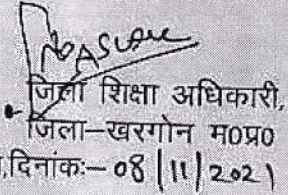 जिला शिक्षा अधिकारी,
जिला–खरगोन म0प्र0
दिनांकः– 08/11/2021